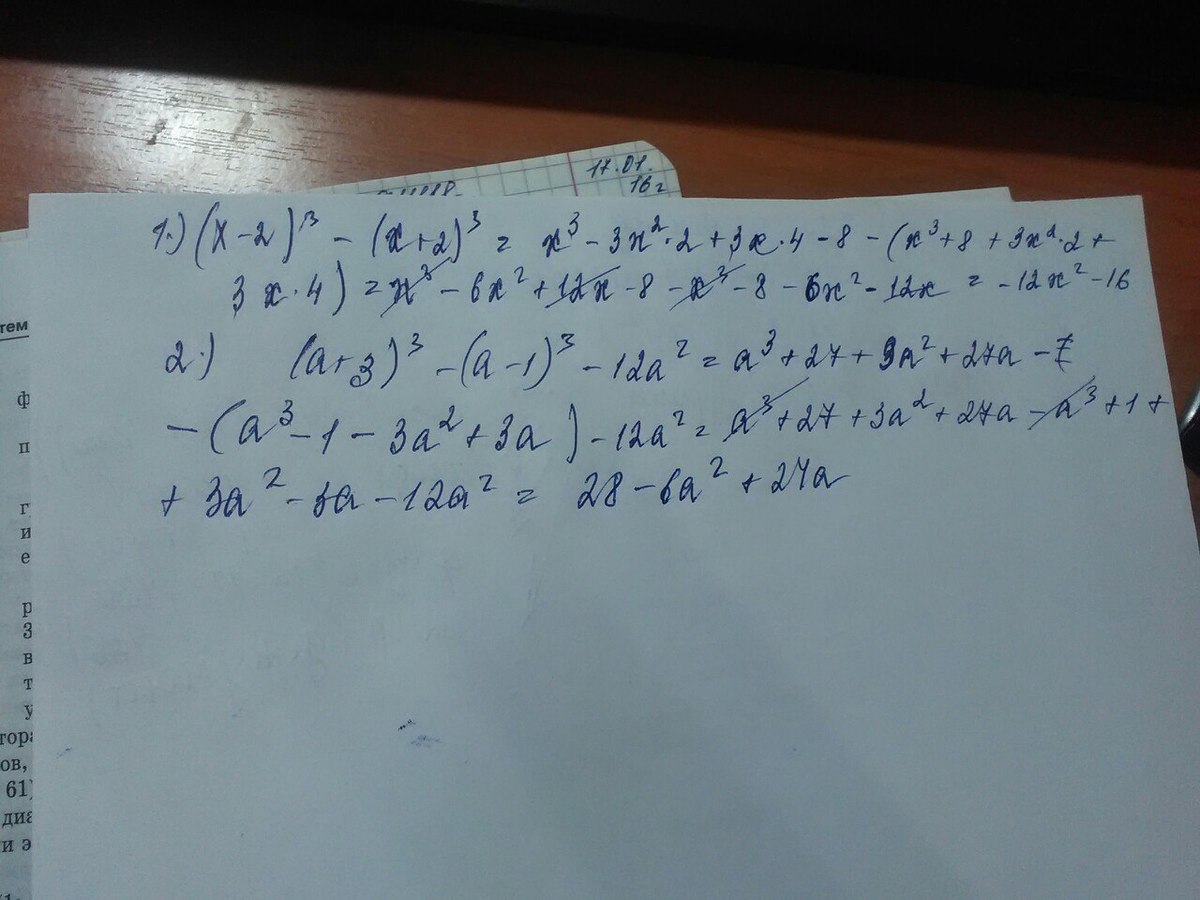 17.01.
16г
1.) (x-2)³ - (x+2)³ = x³ - 3x²·2 + 3x·4 - 8 - (x³+8 + 3x²·2 +
3x·4) = x³ - 6x² + 12x - 8 - x³ - 8 - 6x² - 12x = -12x² - 16
2.) (a+3)³ - (a-1)³ - 12a² = a³ + 27 + 9a² + 27a -
- (a³ - 1 - 3a² + 3a) - 12a² = a³ + 27 + 3a² + 27a - a³ + 1 +
+ 3a² - 3a - 12a² = 28 - 6a² + 24a
тем
ф
п
г
и
е
р
З
в
т
у
тора
ов,
61)
диа
и э